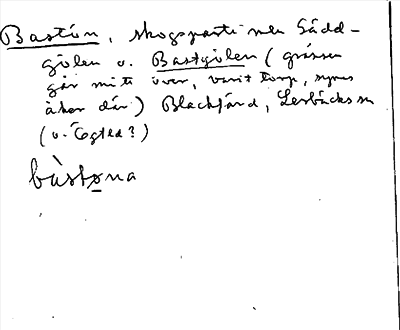 Bastön, skogsparti mellan Gädd-
gölen o. Bastgölen (gränsen
går mitt över, varit torp, synes
åker där) Blackfärd, Lerbäcks sn
(o. Tagted?)
bàstøna